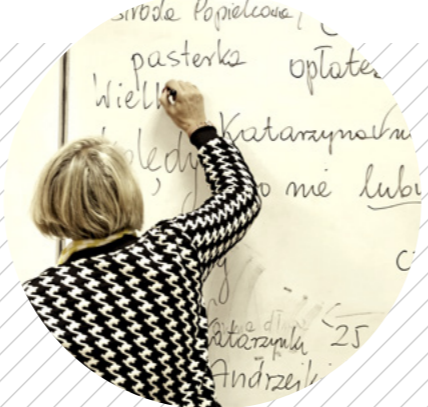 środa Popielcowa
pasterka opłate
Wielk
olędy
nie lubi
atarzynki 25
Andrzejki